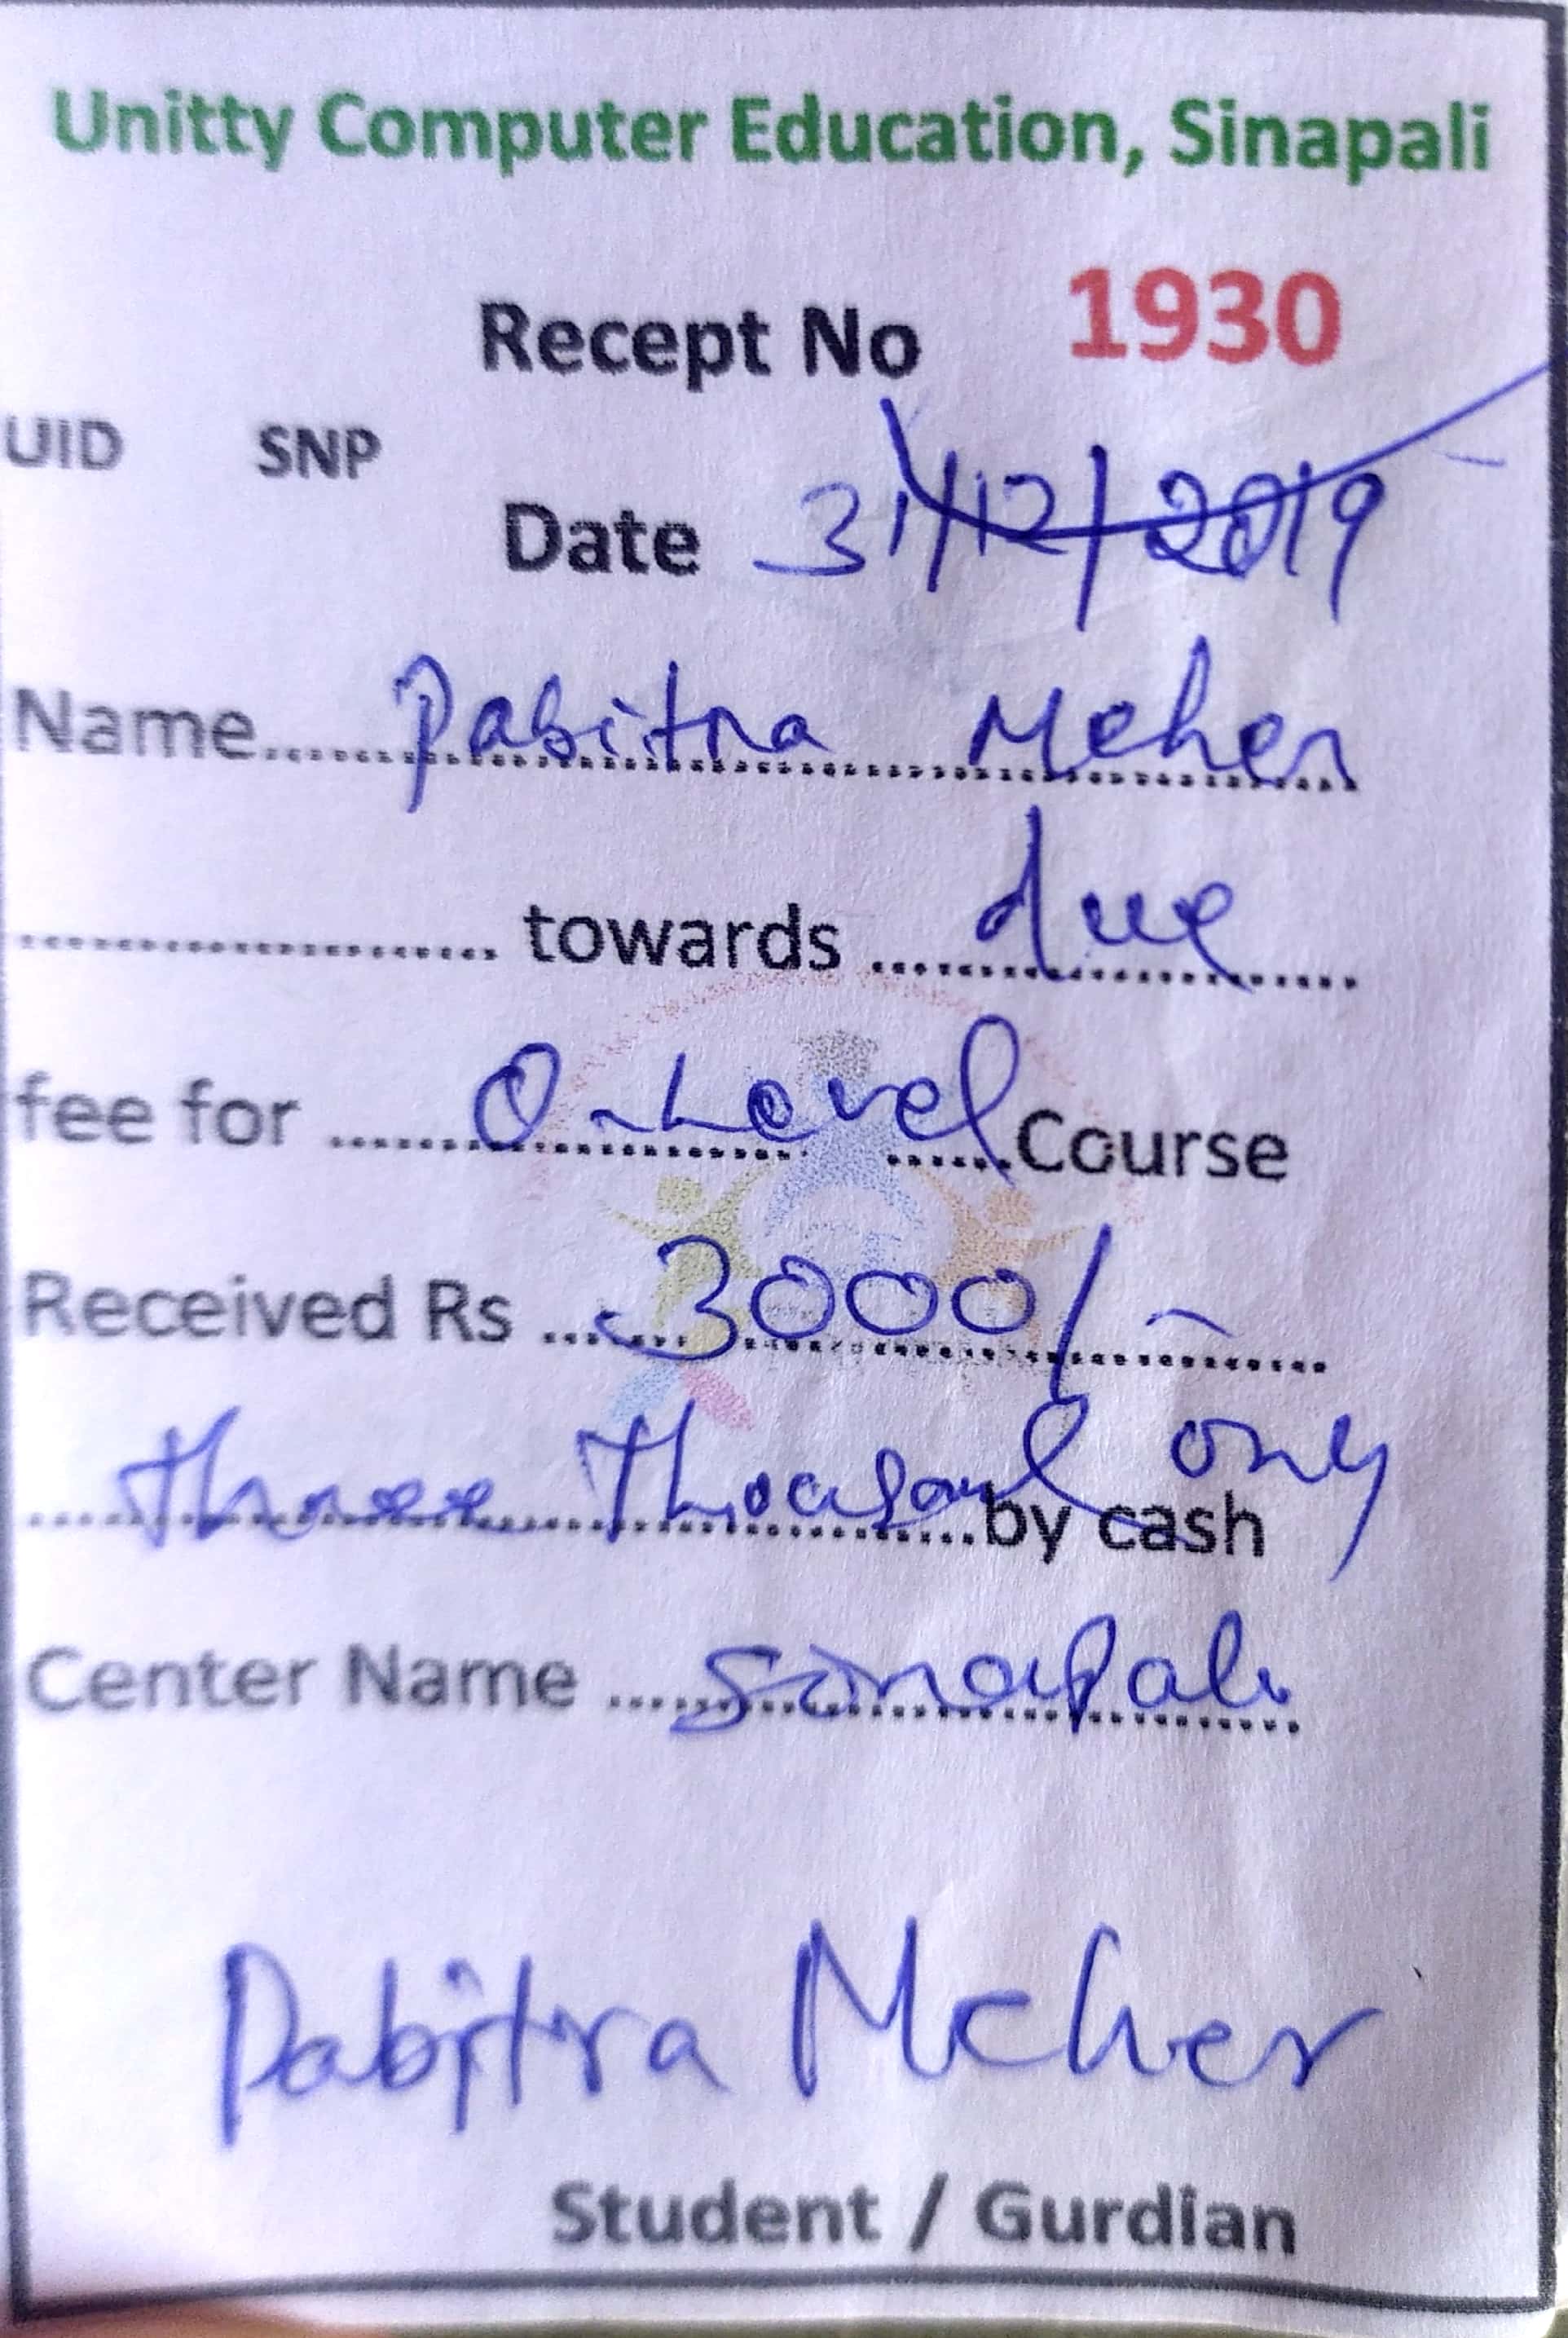 Unitty Computer Education, Sinapali
Recept No 1930
UID SNP
Date 31/12/2019
Name.......Pabitra Meher
.......................... towards ...due
fee for ......O-Level......Course
Received Rs ...3000/-
three Thousand only
...by cash
Center Name ...Sinapali
Pabitra Meher
Student / Gurdian